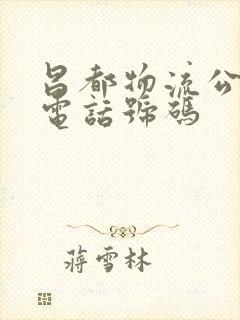 昌都物流公
電話號碼
蔣雪林